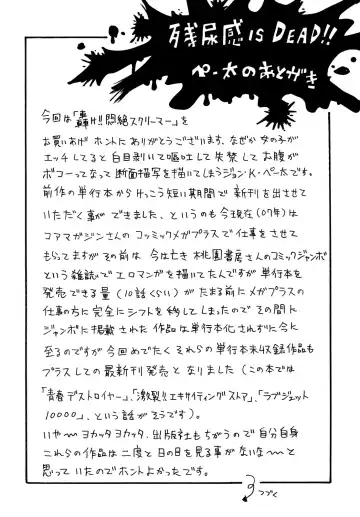 残尿感 IS DEAD!!
ペー太のあとがき
今回は「轟け!!悶絶スクリーマー」を
お買いあげ ホントにありがとうございます、なぜか女の子が
エッチしてると白目剥いて嘔吐して失禁してお腹が
ボコーってなって断面描写を描いてしまうジョン・K・ペー太です。
前作の単行本からけっこう短い期間で新刊を出させて
いただく事ができました、というのも今現在(07年)は
コアマガジンさんのコミックメガプラスで仕事をさせて
もらってますがその前は 今は亡き 桃園書房さんのコミックジャンボ
という雑誌でエロマンガを描いてたんですが単行本を
発売できる量(10話くらい)が たまる前にメガプラスの
仕事の方に完全にシフトを移してしまったので その間に
ジャンボに掲載された作品は単行本化されずに今に
至るのですが 今回めでたく それらの単行本未収録作品も
プラスしての最新刊発売と なりました(この本では
「青春デストロイヤー」、「激裂!!エキサイティングストア」、「ラブジェット
10000」、という話がそうです)。
いや〜ヨカッタヨカッタ、出版社もちがうので自分自身
これらの作品は二度と日の目を見る事がないな〜と
思っていたのでホントよかったです。
つづく